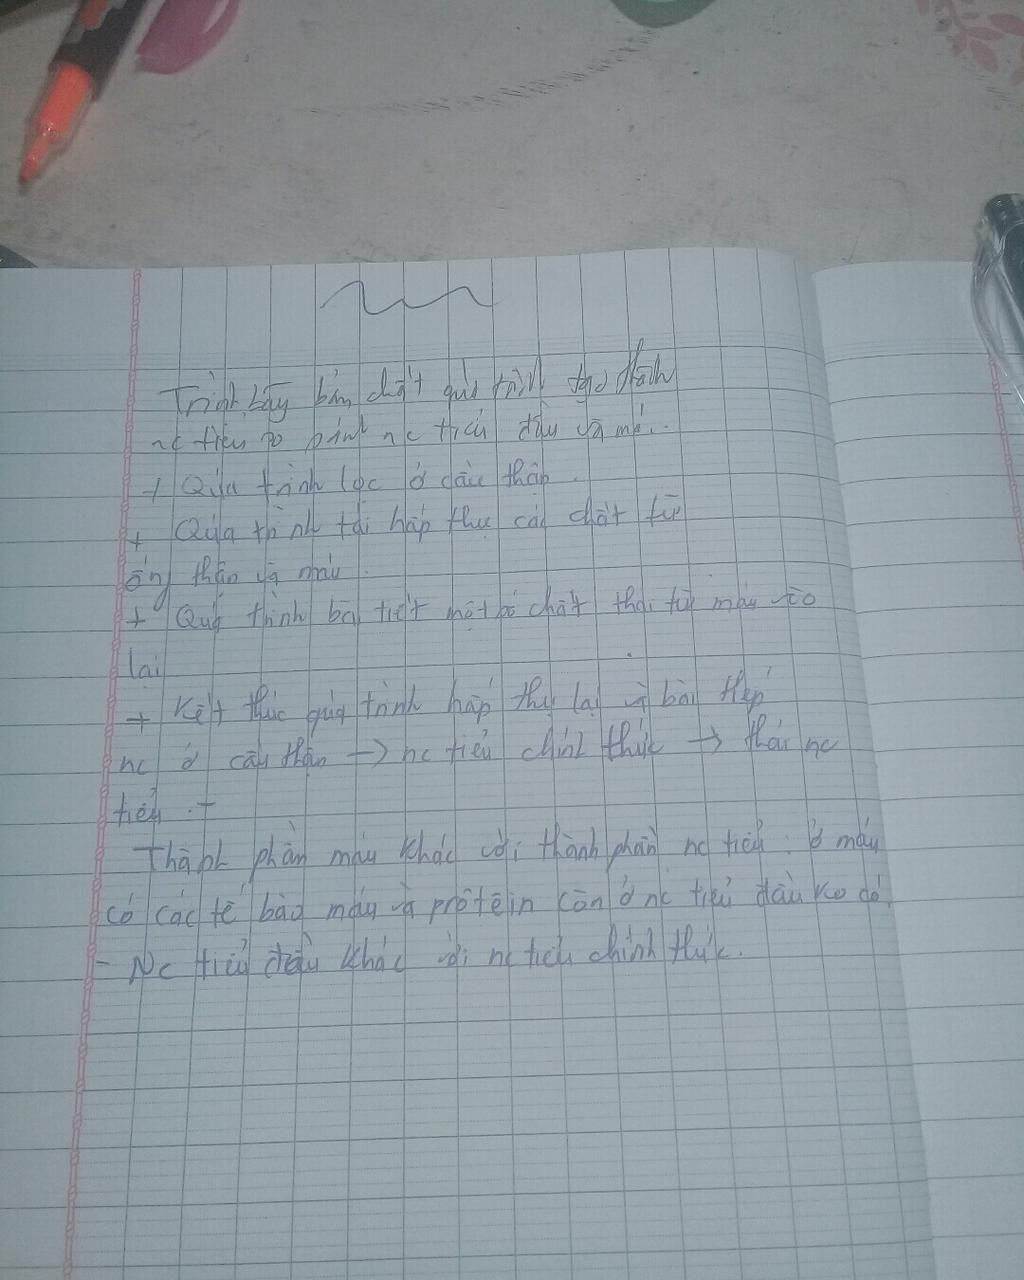 Trình bày bản chất quá trình tạo thành
nc tiểu so sánh nc tiểu đầu và má..
+ Qúa trình lọc ở cầu thận.
+ Qúa trình tái hấp thu các chất từ
ống thận và máu.
+ Quá trình bài tiết một số chất thải từ máu
lại
+ Kết thúc quá trình hấp thụ lại và bài tiếp
nc ở cầu thận → nc tiểu chính thức → thải nc
tiểu .-
Thành phần máu khác với thành phần nc tiểu. Ở máu
có các tế bào máu và prôtêin còn ở nc tiểu đầu ko có.
- Nc tiểu đầu khác với nc tiểu chính thức.